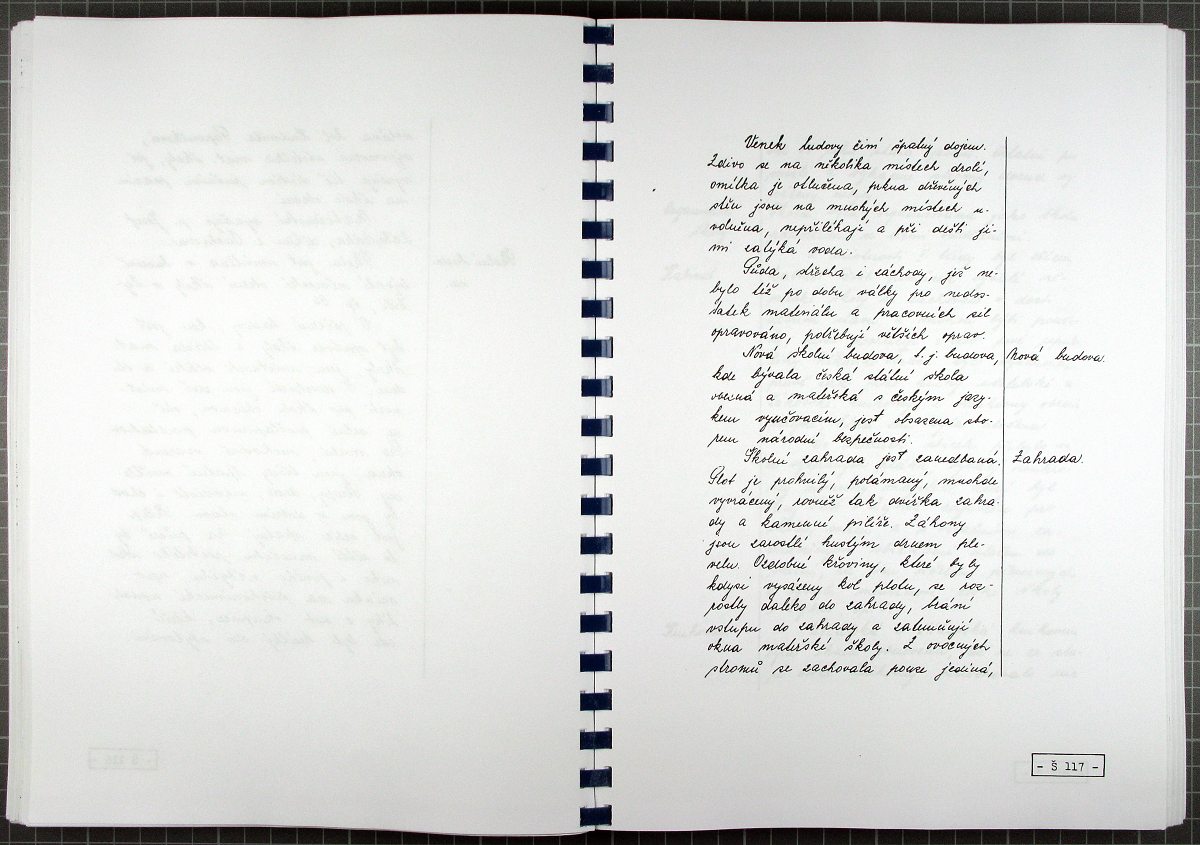 Venek budovy činí špatný dojem.
Zdivo se na několika místech drolí,
omítka je otlučena, prkna dřevěných
stěn jsou na mnohých místech u-
volněna, nepřiléhají a při dešti ji-
mi zatýká voda.
Půda, střecha i záchody, jež ne-
bylo též po dobu války pro nedos-
tatek materiálu a pracovních sil
opravováno, potřebují větších oprav.
Nová školní budova, t. j. budova, Nová budova.
kde bývala česká státní škola
obecná a mateřská s českým jazy-
kem vyučovacím, jest obsazena sbo-
rem národní bezpečnosti.
Školní zahrada jest zanedbaná. Zahrada.
Plot je prohnilý, polámaný, mnohde
vyvrácený, rovněž tak dvířka zahra-
dy a kamenné pilíře. Záhony
jsou zarostlé hustým drnem ple-
velu. Ozdobné křoviny, které byly
kdysi vysázeny kol plotu, se roz-
rostly daleko do zahrady, brání
vstupu do zahrady a zatemňují
okna mateřské školy. Z ovocných
stromů se zachovala pouze jediná,
- Š 117 -